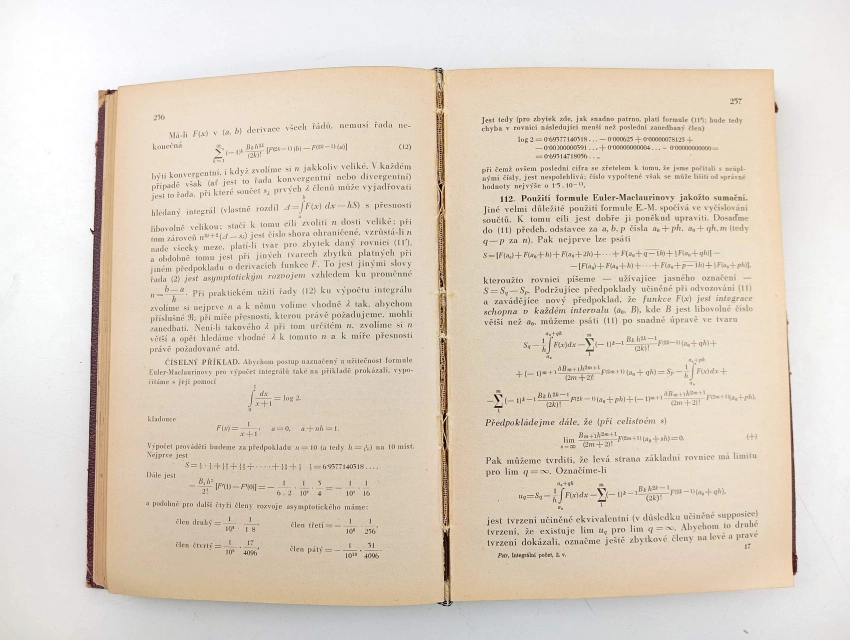 256
Má-li F(x) v (a, b) derivace všech řádů, nemusí řada ne-
konečná ∑(—1)ᵏ Bₖ h²ᵏ/(2k)! [F(2k—1)(b) — F(2k—1)(a)] (12)
býti konvergentní, i když zvolíme si n jakkoliv veliké. V každém
případě však (ať jest to řada konvergentní nebo divergentní)
jest to řada, při které součet prvých členů může vyjadřovati
hledaný integrál (vlastně rozdíl Δ = ∫F(x) dx — hS) s přesností
libovolně velkou; stačí k tomu cíli zvoliti n dosti veliké; při
tom zároveň jest číslo shora ohraničené, vzrůstá-li n
nade všecky meze, platí-li tvar pro zbytek daný rovnicí (11′),
a obdobně tomu jest při jiných tvarech zbytků platných při
jiném předpokladu o derivacích funkce F. To jest jinými slovy
řada (2) jest asymptotickým rozvojem vzhledem ku proměnné
n = (b — a)/h. Při praktickém užití řady (12) ku výpočtu integrálu
zvolíme si nejprve n a k němu volíme vhodně λ tak, abychom
příslušné ℜ; při míře přesnosti, kterou právě požadujeme, mohli
zanedbati. Není-li takového λ při tom určitém n, zvolíme si n
větší a opět hledáme vhodné λ k tomuto n a k míře přesnosti
právě požadované atd.
ČÍSELNÝ PŘÍKLAD. Abychom postup naznačený a užitečnost formule
Euler-Maclaurinovy pro výpočet integrálů také na příkladě prokázali, vypo-
čítáme s její pomocí
∫₀¹ dx/(x+1) = log 2.
kladouce
F(x) = 1/(x+1), a = 0, a + nh = 1.
Výpočet prováděti budeme za předpokladu n = 10 (a tedy h = 1/10) na 10 míst.
Nejprve jest
Dále jest
— B₁h²/2! [F′(1) — F′(0)] = — 1/(6 . 2) · 1/10² · 3/4 = — 1/10² · 1/16
a podobně pro další čtyři členy rozvoje asymptotického máme:
člen třetí = — 1/10⁶ · 1/256
člen čtvrtý = 1/10⁸ · 17/4096, člen pátý = — 1/10¹⁰ · 31/4096
257
Jest tedy (pro zbytek zde, jak snadno patrno, platí formule bude tedy
chyba v rovnici následující menší než poslední zanedbaný člen)
log 2 = 0·69577140318... — 0·000625 + 0·00000078125 +
— 0·00300000391... + 0·00000000004... — 0·00000000000 =
= 0·69314718056...
při čemž ovšem poslední cifra se zřetelem k tomu, že jsme počítali s neúpl-
nými čísly, jest nespolehlivá; číslo vypočtené však se může lišiti od správné
hodnoty nejvýše o
112. Použití formule Euler-Maclaurinovy jakožto sumační.
Jiné velmi důležité použití formule E.-M. spočívá ve vyčíslování
součtů. K tomu cíli jest dobře ji poněkud upraviti. Dosaďme
do (11) předch. odstavce za a, b, p čísla a₀ + ph, a₀ + qh, m (tedy
q — p za n). Pak nejprve lze psáti
S = [F(a₀) + F(a₀ + h) + F(a₀ + 2h) + · · · + F(a₀ + q—1h) + ½F(a₀ + qh)] —
— [F(a₀) + F(a₀ + h) + · · · + F(a₀ + p—1h) + ½F(a₀ + ph)],
kteroužto rovnici píšeme — užívajíce jasného označení —
S = S_q — S_p. Podržujíce předpoklady učiněné při odvozování (11)
a zavádějíce nový předpoklad, že funkce F(x) jest integrace
schopna v každém intervalu (a₀, B), kde B jest libovolné číslo
větší než a₀, můžeme psáti (11) po snadné úpravě ve tvaru
S_q — 1/h ∫F(x)dx — ∑(—1)ᵏ⁻¹ Bₖ h²ᵏ⁻¹/(2k)! F(2k—1)(a₀ + qh) +
+ (—1)ᵐ⁺¹ ϑBₘ₊₁h²ᵐ⁺¹/(2m+2)! F(2m+1)(a₀ + qh) = S_p — 1/h ∫F(x)dx +
— ∑(—1)ᵏ⁻¹ Bₖ h²ᵏ⁻¹/(2k)! F(2k—1)(a₀ + ph) + (—1)ᵐ⁺¹ ϑBₘ₊₁h²ᵐ⁺¹/(2m+2)! F(2m+1)(a₀ + ph).
Předpokládejme dále, že (při celistvém s)
lim Bₘ₊₁h²ᵐ⁺¹/(2m+2)! F(2m+1)(a₀ + sh) = 0. (+)
s=∞
Pak můžeme tvrditi, že levá strana základní rovnice má limitu
pro lim q = ∞. Označíme-li
u_q = S_q — 1/h ∫F(x)dx — ∑(—1)ᵏ⁻¹ Bₖ h²ᵏ⁻¹/(2k)! F(2k—1)(a₀ + qh),
jest tvrzení učiněné ekvivalentní (v důsledku učiněné supposice)
tvrzení, že existuje lim u_q pro lim q = ∞. Abychom to druhé
tvrzení dokázali, označme ještě zbytkové členy na levé a pravé
Petr, Integrální počet, 2. v.
17